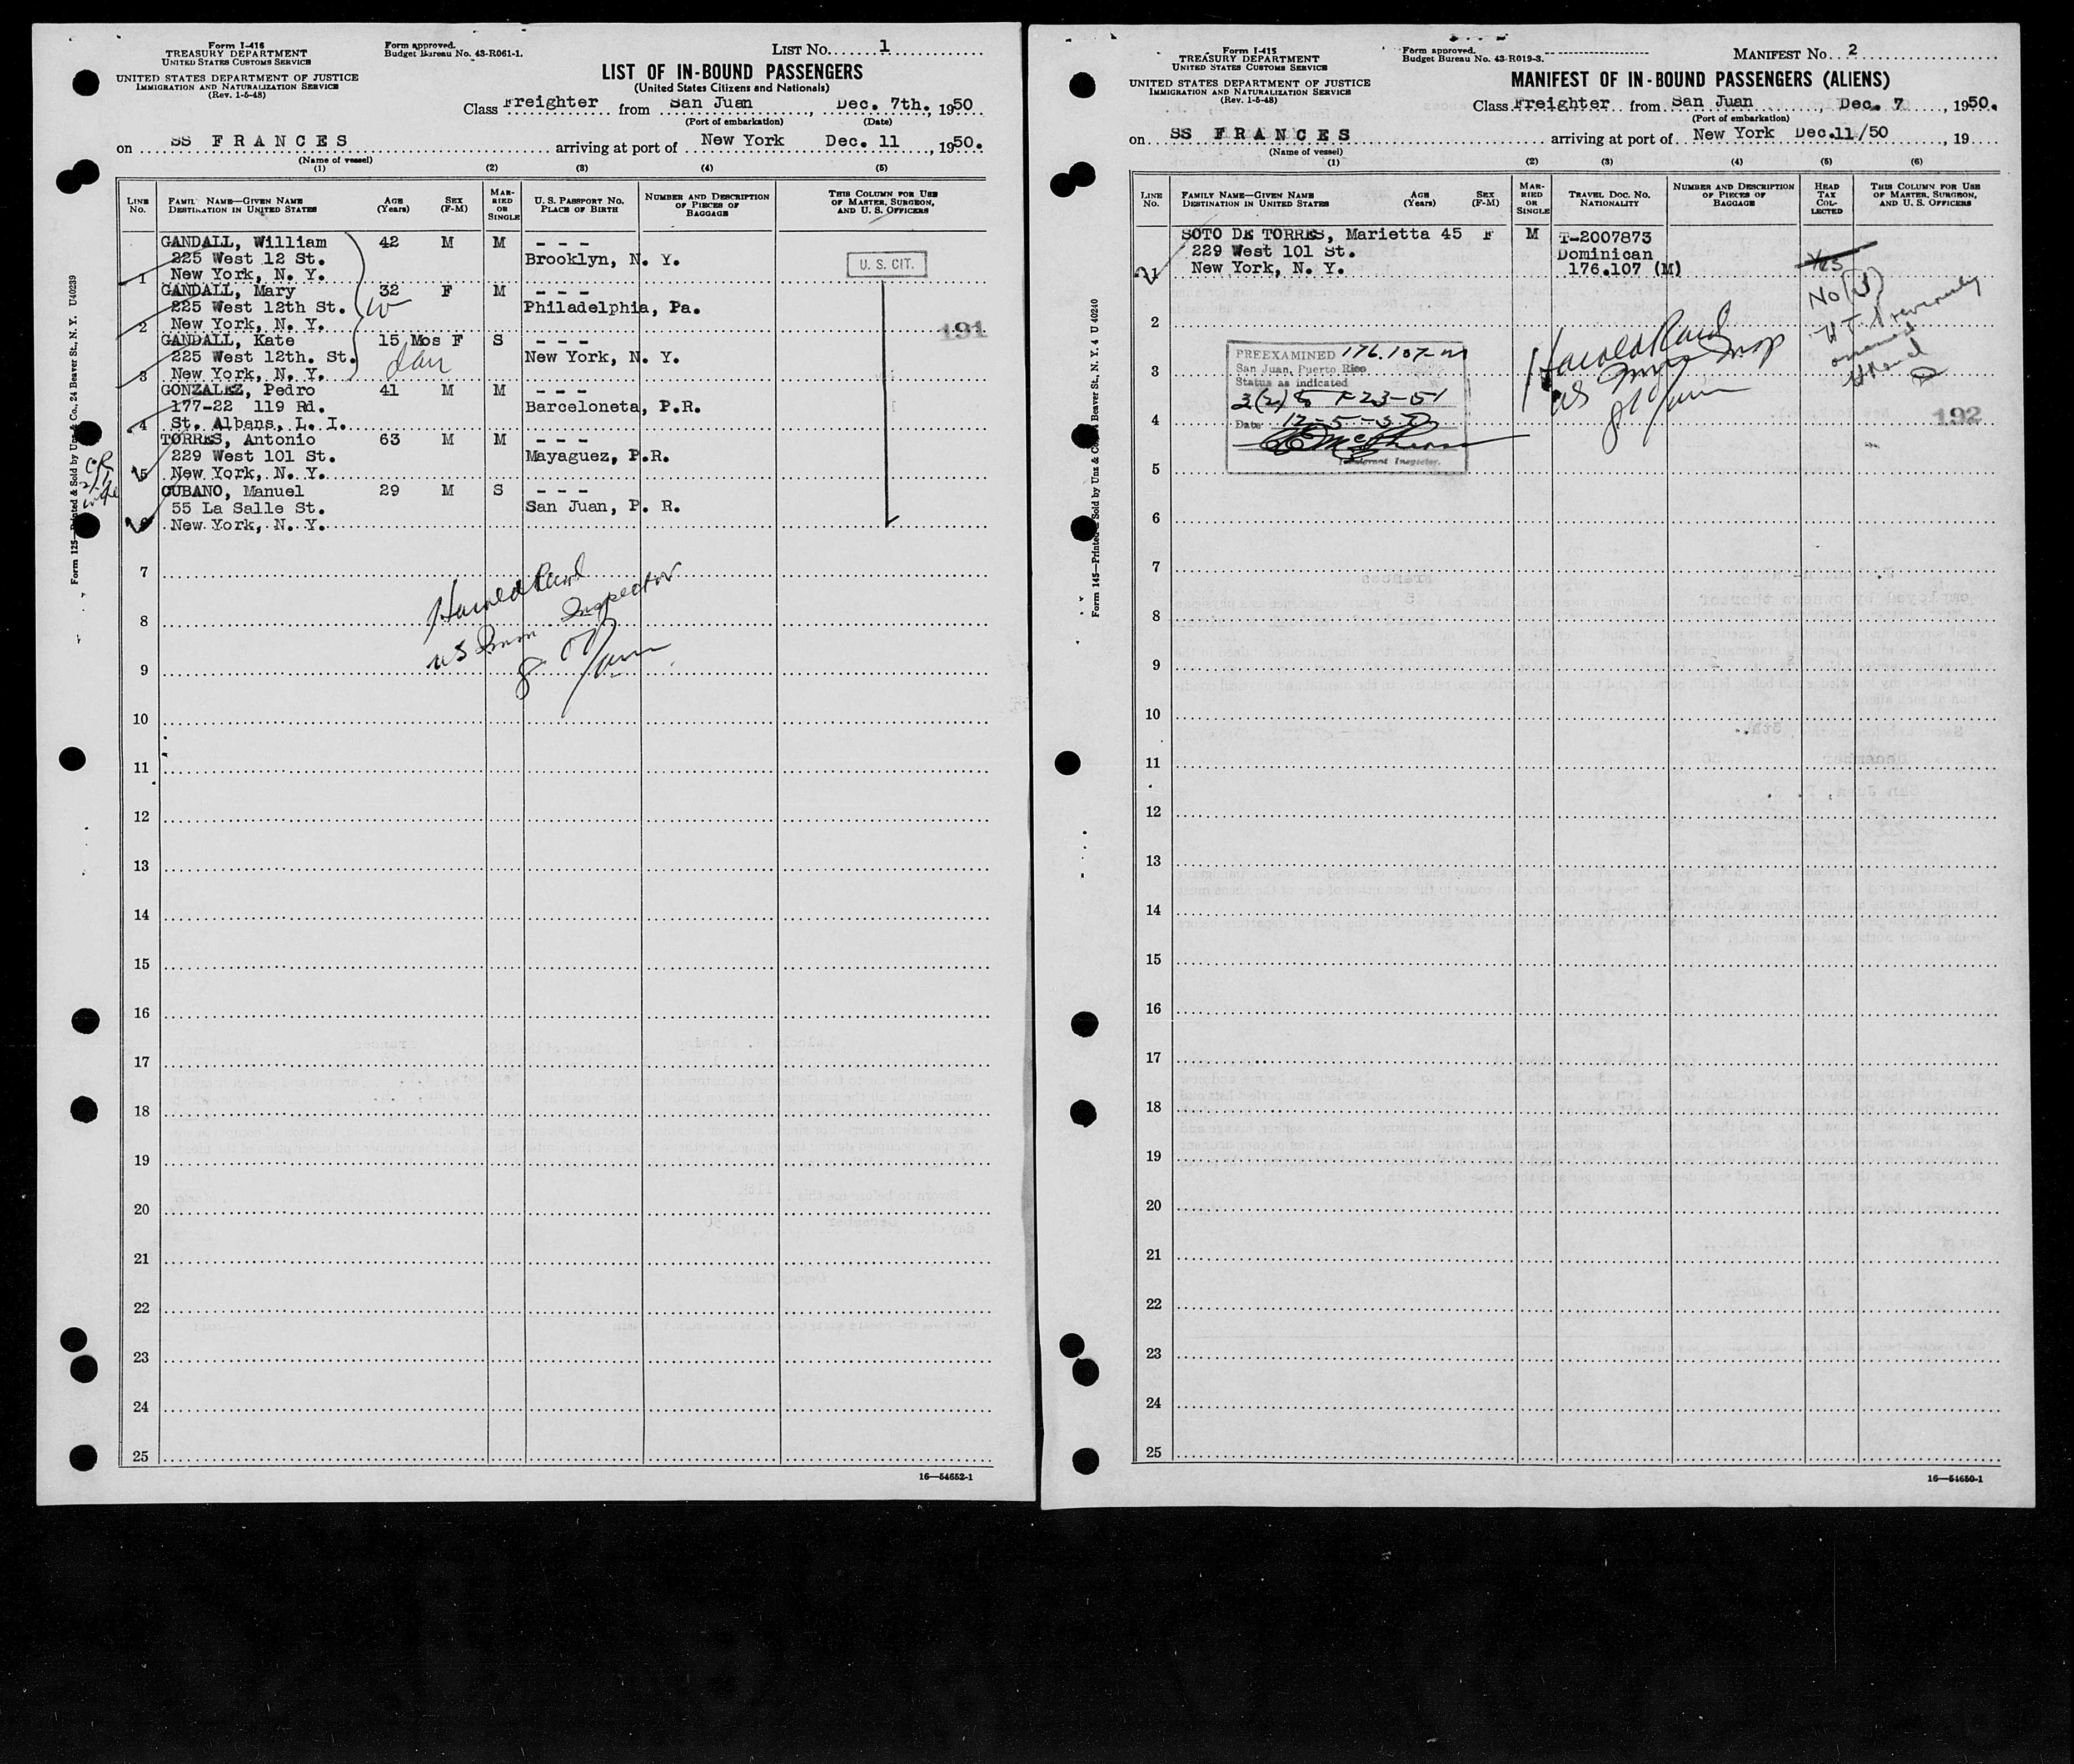 Form I-416
TREASURY DEPARTMENT
UNITED STATES CUSTOMS SERVICE
UNITED STATES DEPARTMENT OF JUSTICE
IMMIGRATION AND NATURALIZATION SERVICE
(Rev. 1-5-48)
Form approved.
Budget Bureau No. 43-R061-1.
LIST NO. 1
LIST OF IN-BOUND PASSENGERS
(United States Citizens and Nationals)
Class Freighter from San Juan, Dec. 7th, 1950
(Port of embarkation) (Date)
on SS FRANCES arriving at port of New York Dec. 11, 1950.
(Name of vessel)
(1) (2) (3) (4) (5)
LINE NO. FAMILY NAME—GIVEN NAME DESTINATION IN UNITED STATES AGE (Years) SEX (F-M) MARRIED OR SINGLE U. S. PASSPORT NO. PLACE OF BIRTH NUMBER AND DESCRIPTION OF PIECES OF BAGGAGE THIS COLUMN FOR USE OF MASTER, SURGEON, AND U. S. OFFICERS
GANDALL, William 42 M M - - -
225 West 12 St. Brooklyn, N. Y. U. S. CIT.
1 New York, N. Y.
GANDALL, Mary 32 F M - - -
225 West 12th St. Philadelphia, Pa.
2 New York, N. Y. 191
GANDALL, Kate 15 Mos F S - - -
225 West 12th. St. New York, N. Y.
3 New York, N. Y.
GONZALEZ, Pedro 41 M M - - -
177-22 119 Rd. Barceloneta, P.R.
4 St. Albans, L. I.
TORRES, Antonio 63 M M - - -
229 West 101 St. Mayaguez, P.R.
5 New York, N. Y.
CUBANO, Manuel 29 M S - - -
55 La Salle St. San Juan, P. R.
6 New York, N. Y.
7
8
9
10
11
12
13
14
15
16
17
18
19
20
21
22
23
24
25
16—54652-1
Form 125—Printed & Sold by Unz & Co., 24 Beaver St., N. Y. U40239
Form I-415
TREASURY DEPARTMENT
UNITED STATES CUSTOMS SERVICE
UNITED STATES DEPARTMENT OF JUSTICE
IMMIGRATION AND NATURALIZATION SERVICE
(Rev. 1-5-48)
Form approved.
Budget Bureau No. 43-R019-3.
MANIFEST NO. 2
MANIFEST OF IN-BOUND PASSENGERS (ALIENS)
Class Freighter from San Juan, Dec. 7, 1950.
(Port of embarkation)
on SS FRANCES arriving at port of New York Dec.11/50, 19
(Name of vessel)
(1) (2) (3) (4) (5) (6)
LINE NO. FAMILY NAME—GIVEN NAME DESTINATION IN UNITED STATES AGE (Years) SEX (F-M) MARRIED OR SINGLE TRAVEL DOC. NO. NATIONALITY NUMBER AND DESCRIPTION OF PIECES OF BAGGAGE HEAD TAX COLLECTED THIS COLUMN FOR USE OF MASTER, SURGEON, AND U. S. OFFICERS
SOTO DE TORRES, Marietta 45 F M T-2007873
229 West 101 St. Dominican
1 New York, N. Y. 176.107 (M) Yes
2
3
4
5
PREEXAMINED 176.107-M
San Juan, Puerto Rico
Status as indicated
Date 12-5-50
Immigrant Inspector.
192
6
7
8
9
10
11
12
13
14
15
16
17
18
19
20
21
22
23
24
25
16—54650-1